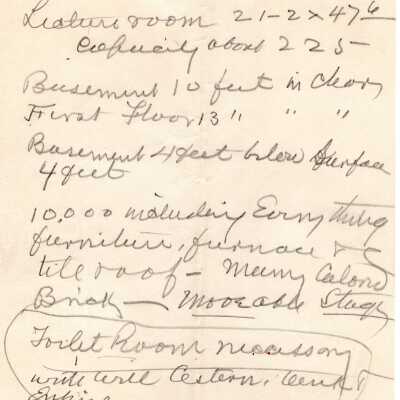 Lecture room 21-2 x 47 6
Capacity about 225
Basement 10 feet in clear,
First Floor 13 " " "
Basement 4 feet below Surface
4 feet
10,000 including Everything
furniture, furnace &
tile roof - Many Colored
Brick - Moveable Stage
Toilet Room necessary
with well Cestern,